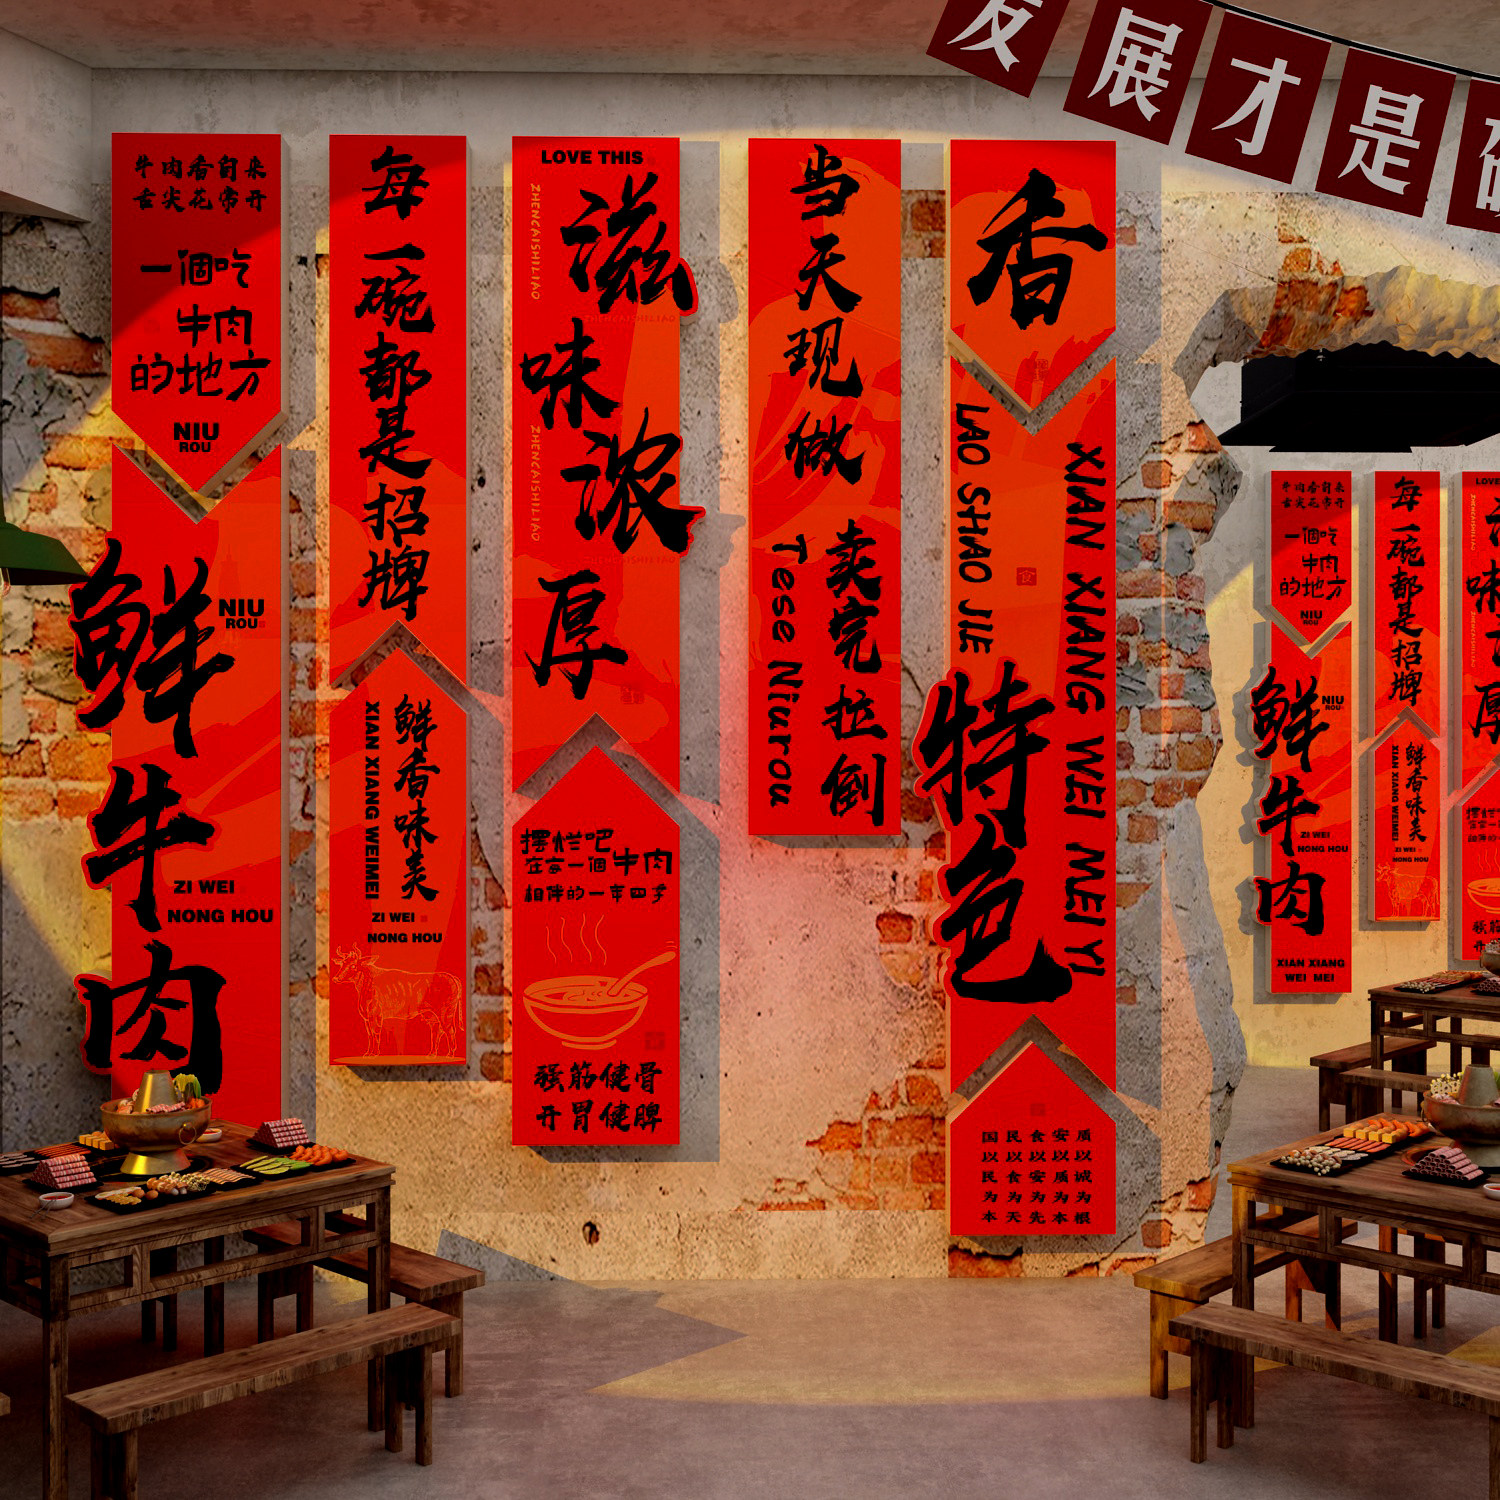 发展才是
牛肉香自来
舌尖花常开
一個吃
牛肉
的地方
NIU
ROU
鲜牛肉
NIU
ROU
ZI WEI
NONG HOU
每一碗都是招牌
鲜香味美
XIAN XIANG WEIMEI
ZI WEI
NONG HOU
LOVE THIS
ZHENCAISHILIAO
滋味浓厚
ZHENCAISHILIAO
摆烂吧
在吉一個牛肉
相伴的一年四季
强筋健骨
开胃健脾
当天现做
卖完拉倒
Tese Niurou
香
LAO SHAO JIE
XIAN XIANG WEI MEI YI
食
特色
国民食安质
以以以以以
民食安质诚
为为为为为
本天先本根
牛肉香自来
舌尖花常开
一個吃
牛肉
的地方
NIU
ROU
鲜牛肉
NIU
ROU
ZI WEI
NONG HOU
XIAN XIANG
WEI MEI
每一碗都是招牌
鲜香味美
XIAN XIANG WEIMEI
ZI WEI
NONG HOU
LOVE
味